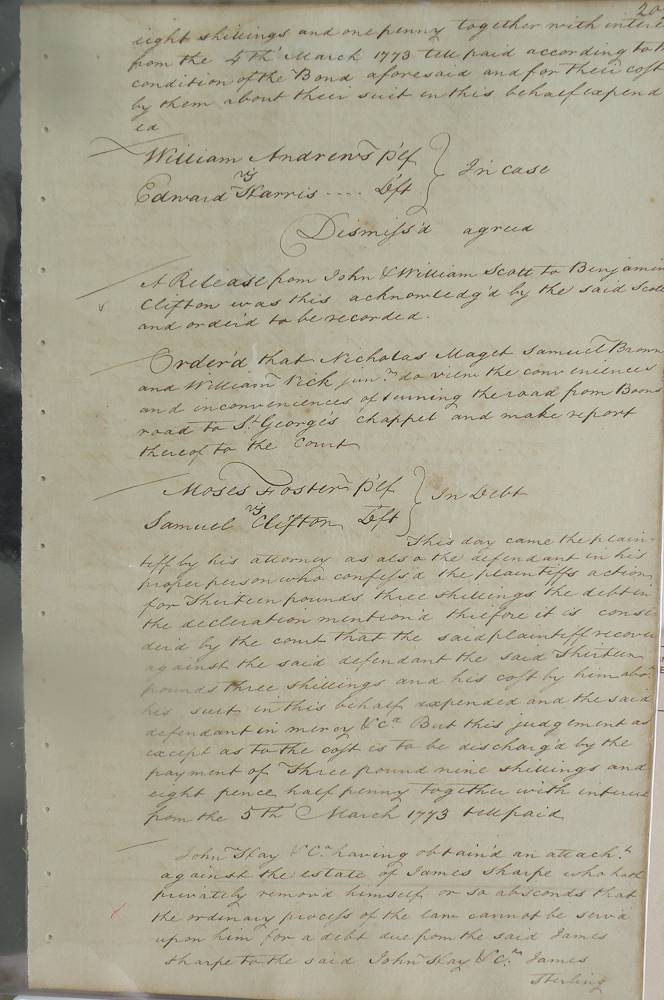 20
eight shillings and one penny together with intere
from the 4th March 1773 till paid according to th
condition of the Bond aforesaid and for their cost
by them about their suit in this behalf expend
ed
William Andrews plf
vs
Edward Harris .... Dft
In case
Dismiss'd agreed
A Release from John & William Scott to Benjamin
Clifton was this acknowledg'd by the said Scott
and order'd to be recorded.
Order'd that Nicholas Maget Samuel Brown
and William Vick junr. do view the conveniences
and inconveniences of turning the road from Boons
road to St. George's chappel and make report
thereof to the Court
Moses Foster plf
vs
Samuel Clifton Dft
In Debt
This day came the plain
tiff by his attorney as also the defendant in his
proper person who confess'd the plaintiffs action
for Thirteen pounds three shillings the debt in
the decleration mention'd therefore it is consi
der'd by the court that the said plaintiff recover
against the said defendant the said Thirteen
pounds three shillings and his cost by him abt.
his suit in this behalf expended and the said
defendant in mercy &ca. But this judgement as
except as to the cost is to be discharg'd by the
payment of Three pound nine shillings and
eight pence half penny together with interest
from the 5th March 1773 till paid
John Hay & Co. having obtain'd an attacht.
against the estate of James Sharpe who hath
privately remov'd himself or so absconds that
the ordinary process of the law cannot be serv'd
upon him for a debt due from the said James
Sharpe to the said John Hay & Co. James
Sterling